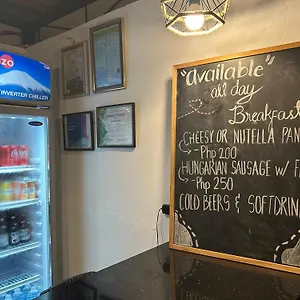 ZO
INVERTER CHILLER
"Available"
all day
Breakfast
CHEESY OR NUTELLA PAN
Php 200
HUNGARIAN SAUSAGE W/
Php 250
COLD BEERS & SOFTDRIN